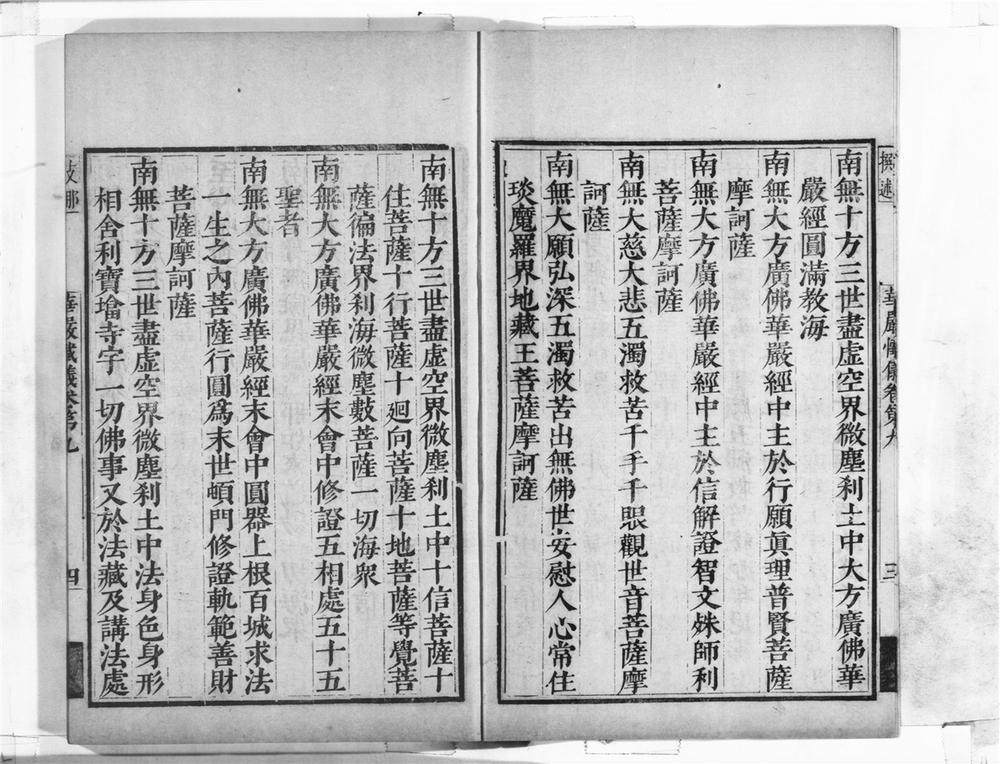 撰述
華嚴懺儀卷第九
三
南無十方三世盡虛空界微塵刹土中大方廣佛華
嚴經圓滿教海
南無大方廣佛華嚴經中主於行願眞理普賢菩薩
摩訶薩
南無大方廣佛華嚴經中主於信解證智文殊師利
菩薩摩訶薩
南無大慈大悲五濁救苦千手千眼觀世音菩薩摩
訶薩
南無大願弘深五濁救苦出無佛世安慰人心常住
琰魔羅界地藏王菩薩摩訶薩
南無十方三世盡虛空界微塵刹土中十信菩薩十
住菩薩十行菩薩十廻向菩薩十地菩薩等覺菩
薩徧法界刹海微塵數菩薩一切海衆
南無大方廣佛華嚴經末會中修證五相處五十五
聖者
南無大方廣佛華嚴經末會中圓器上根百城求法
一生之內菩薩行圓爲末世頓門修證軌範善財
菩薩摩訶薩
南無十方三世盡虛空界微塵刹土中法身色身形
相舍利寶墖寺宇一切佛事又於法藏及講法處
支那
華嚴懺儀卷第九
四